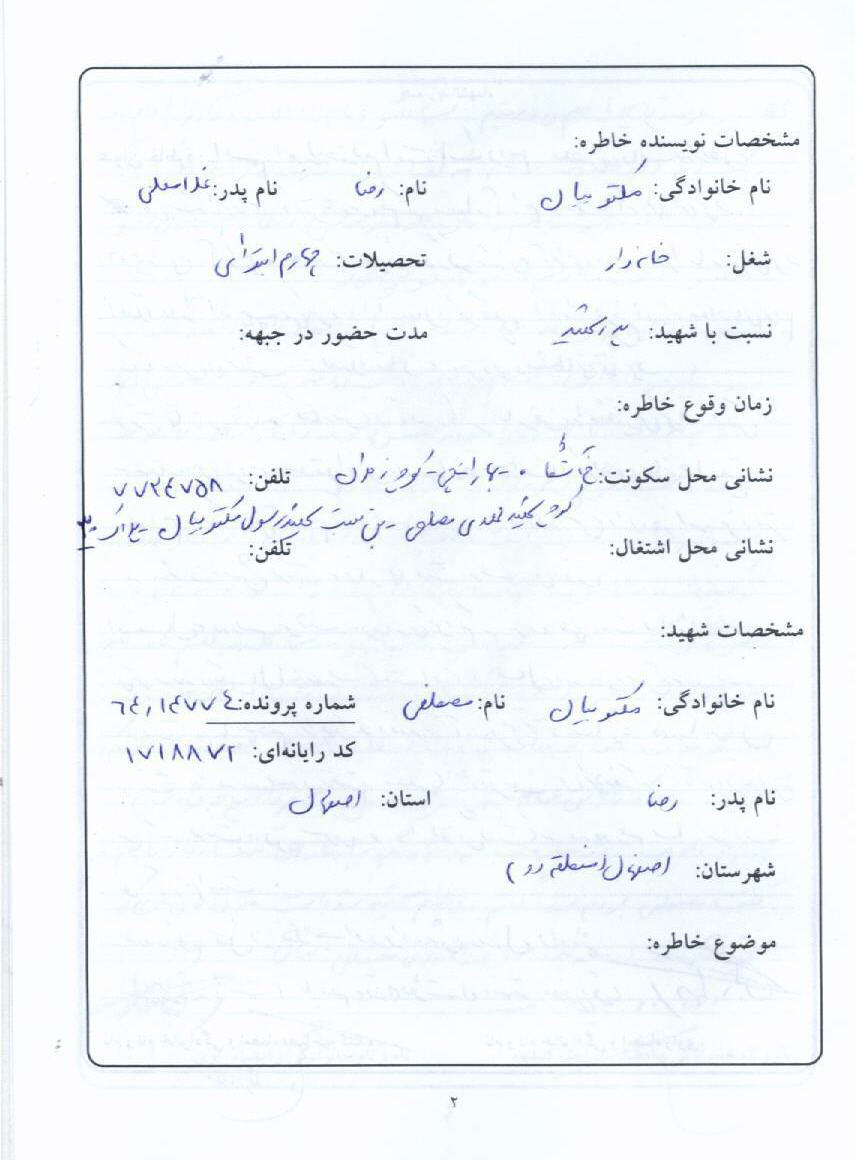 مشخصات نویسنده خاطره:
نام خانوادگی: مکتوبیان نام: رضا نام پدر: غلامعلی
شغل: خانه دار تحصیلات: چهارم ابتدائی
نسبت با شهید: پدر شهید مدت حضور در جبهه:
زمان وقوع خاطره:
نشانی محل سکونت: تلفن: ۷۷۳۴۷۵۸
کوچه شهید مصلحی - بن بست شهید رسول مکتوبیان - پلاک
نشانی محل اشتغال: تلفن:
مشخصات شهید:
نام خانوادگی: مکتوبیان نام: مصطفی شماره پرونده: ۶۴,۱۴۷۷۴
کد رایانه‌ای: ۱۷۱۸۸۷۲
نام پدر: رضا استان: اصفهان
شهرستان: اصفهان (منطقه دو)
موضوع خاطره:
۲